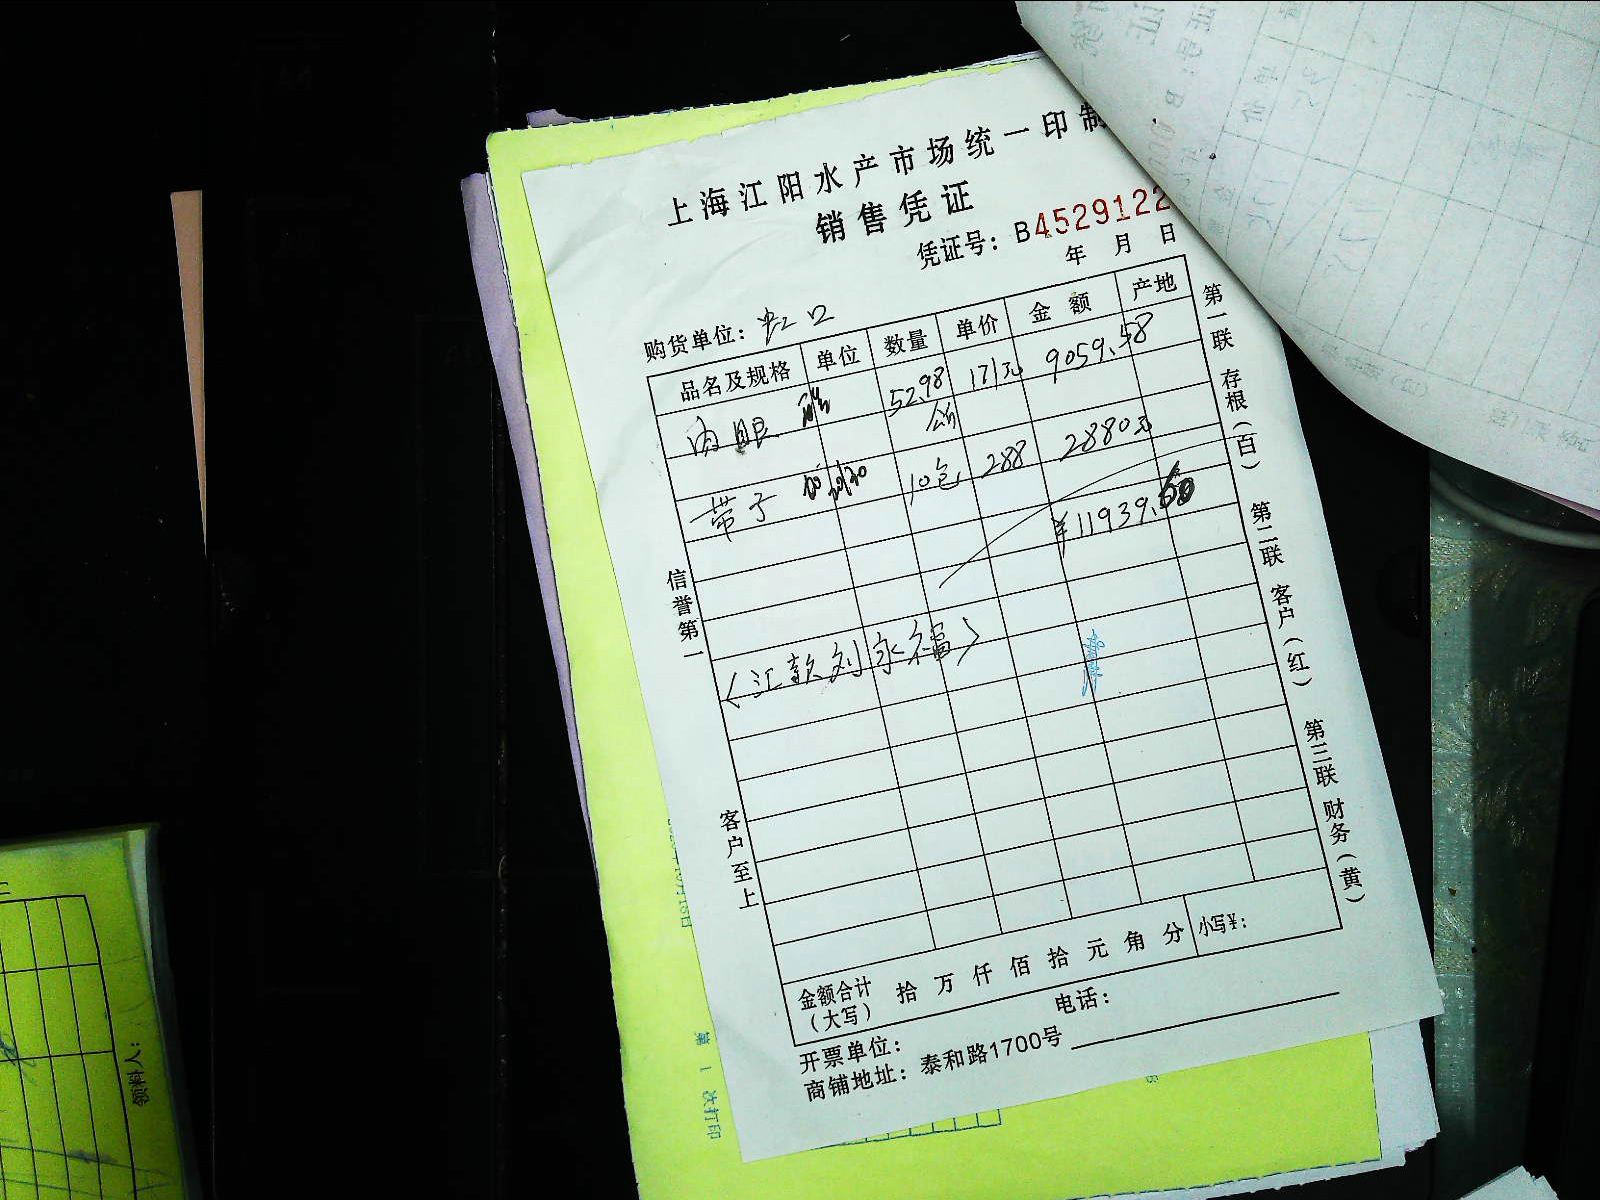 上海江阳水产市场统一印制
销售凭证
凭证号：B4529122
年 月 日
购货单位：虹口
品名及规格 单位 数量 单价 金额 产地
肉眼 52.98 171元 9059.58
带子 20/30 10包 288 28800
¥11939.60
〈汇款刘永福〉
信誉第一
客户至上
第一联 存根（白） 第二联 客户（红） 第三联 财务（黄）
金额合计（大写） 拾 万 仟 佰 拾 元 角 分 小写¥：
开票单位： 电话：
商铺地址：泰和路1700号
第 1 次打印
领料人：